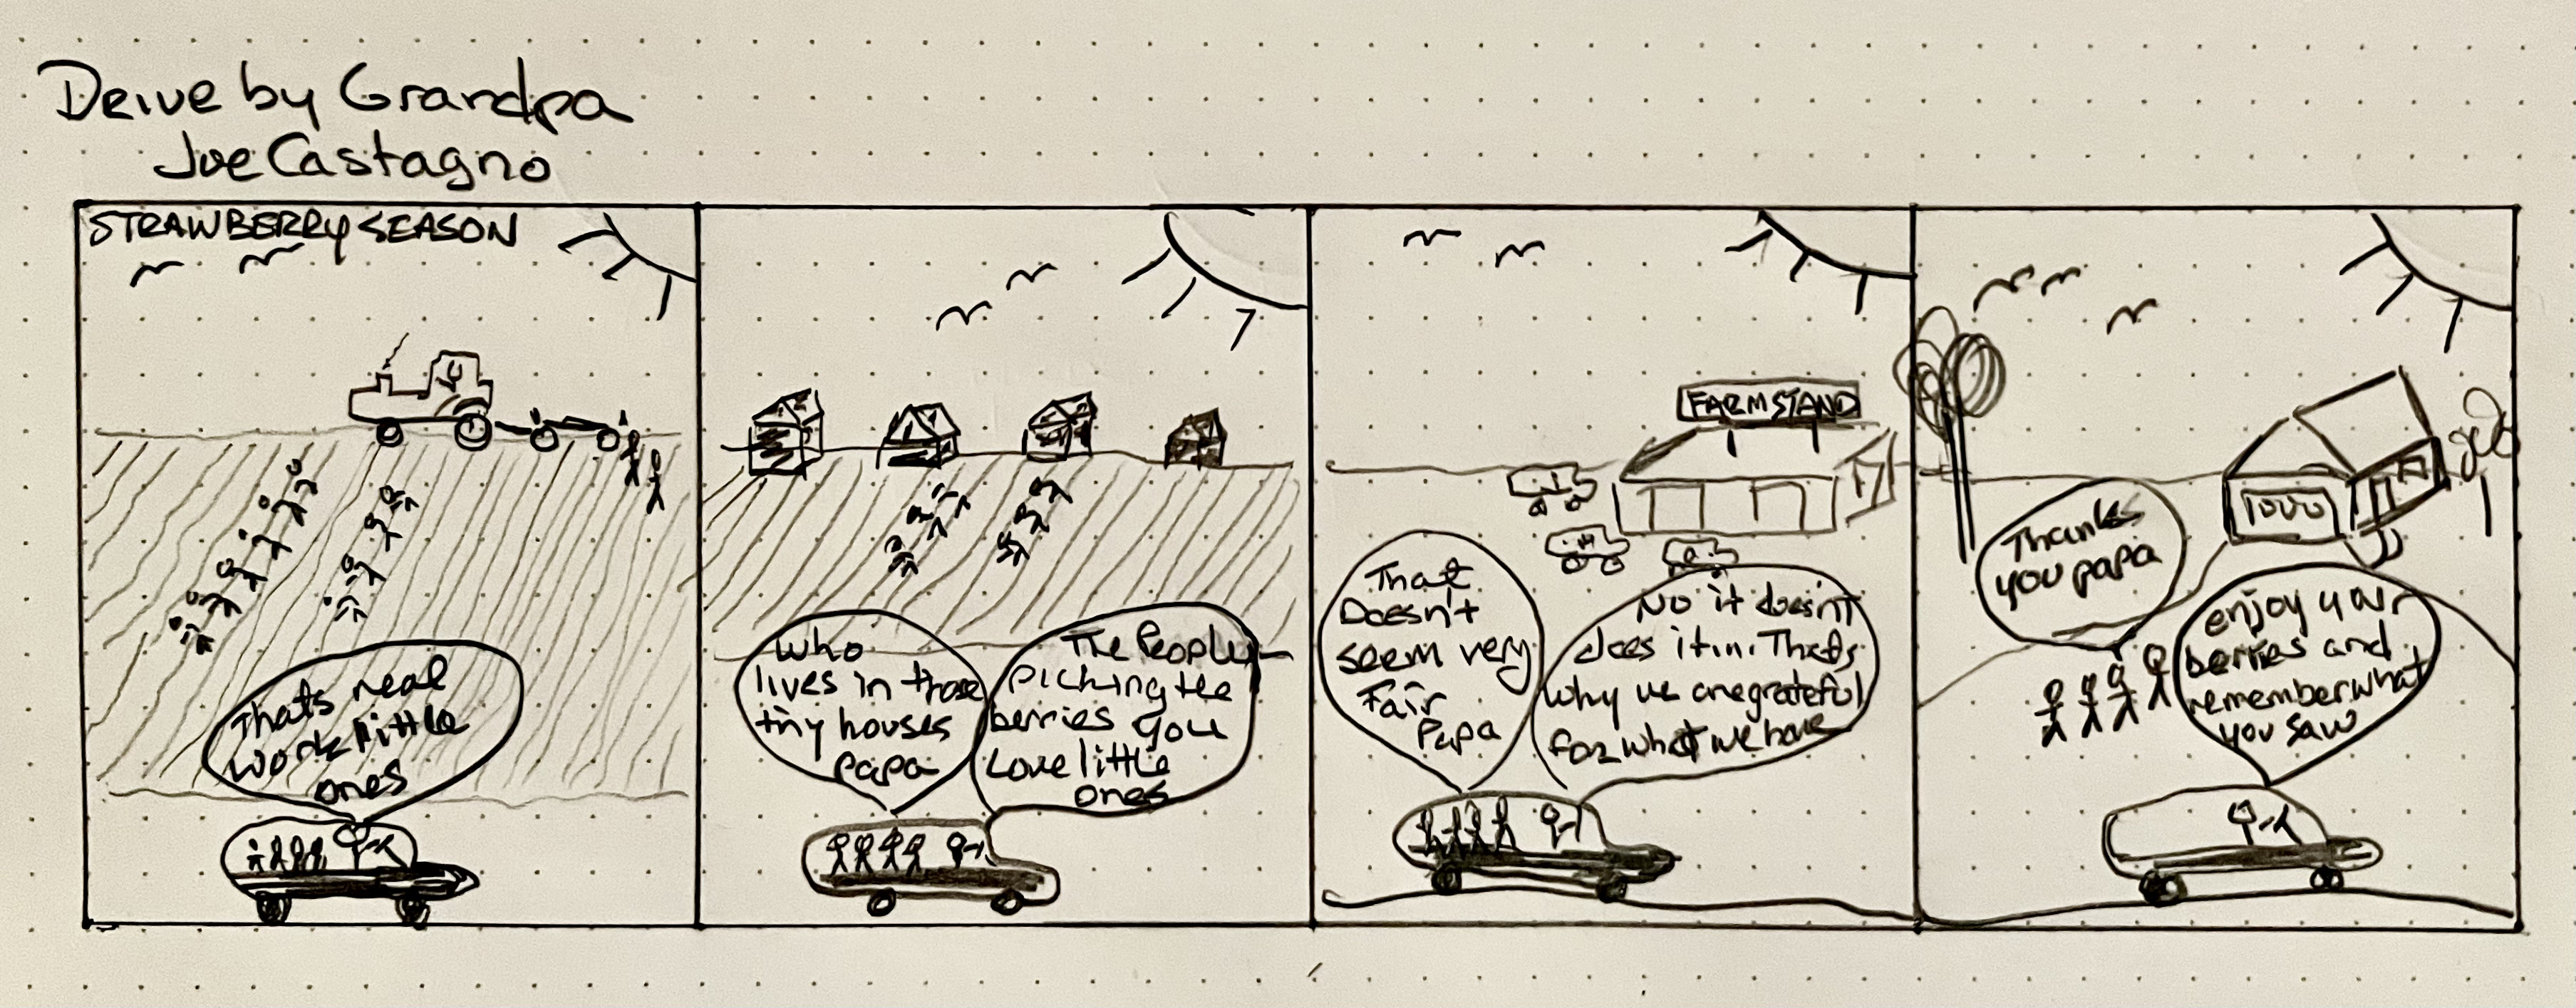 Drive by Grandpa
Joe Castagno
STRAWBERRY SEASON
Thats real
work little
ones
Who
lives in those
tiny houses
papa
The People
picking the
berries you
Love little
ones
FARMSTAND
That
Doesn't
seem very
Fair
Papa
No it doesn't
does it.... Thats
why we are grateful
for what we have
Thank
you papa
enjoy your
berries and
remember what
you saw